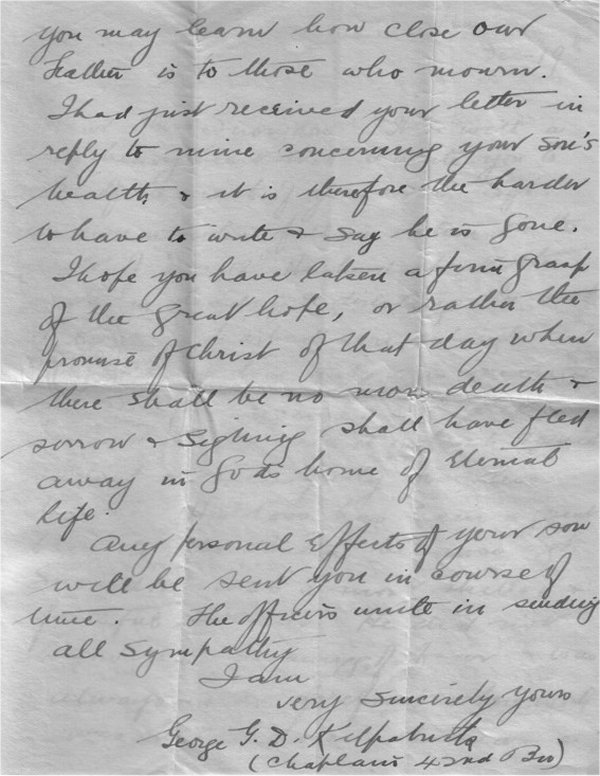 you may learn how close our
Father is to those who mourn.
I had just received your letter in
reply to mine concerning your son's
health, & it is therefore the harder
to have to write & say he is gone.
I hope you have taken a firm grasp
of the great hope, or rather the
promise of Christ of that day when
there shall be no more death &
sorrow & sighing shall have fled
away in Gods home of Eternal
life.
Any personal Effects of your son
will be sent you in course of
time. The officers unite in sending
all sympathy
I am
very sincerely yours
George G. D. Kilpatrick
(Chaplain 42nd Bn)